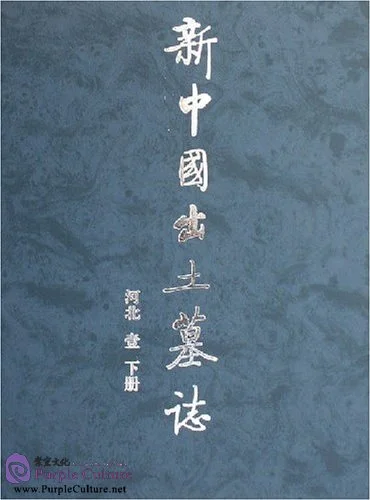 新中國出土墓誌
河北 壹 下册
紫宣文化
Purple Culture
www.PurpleCulture.net